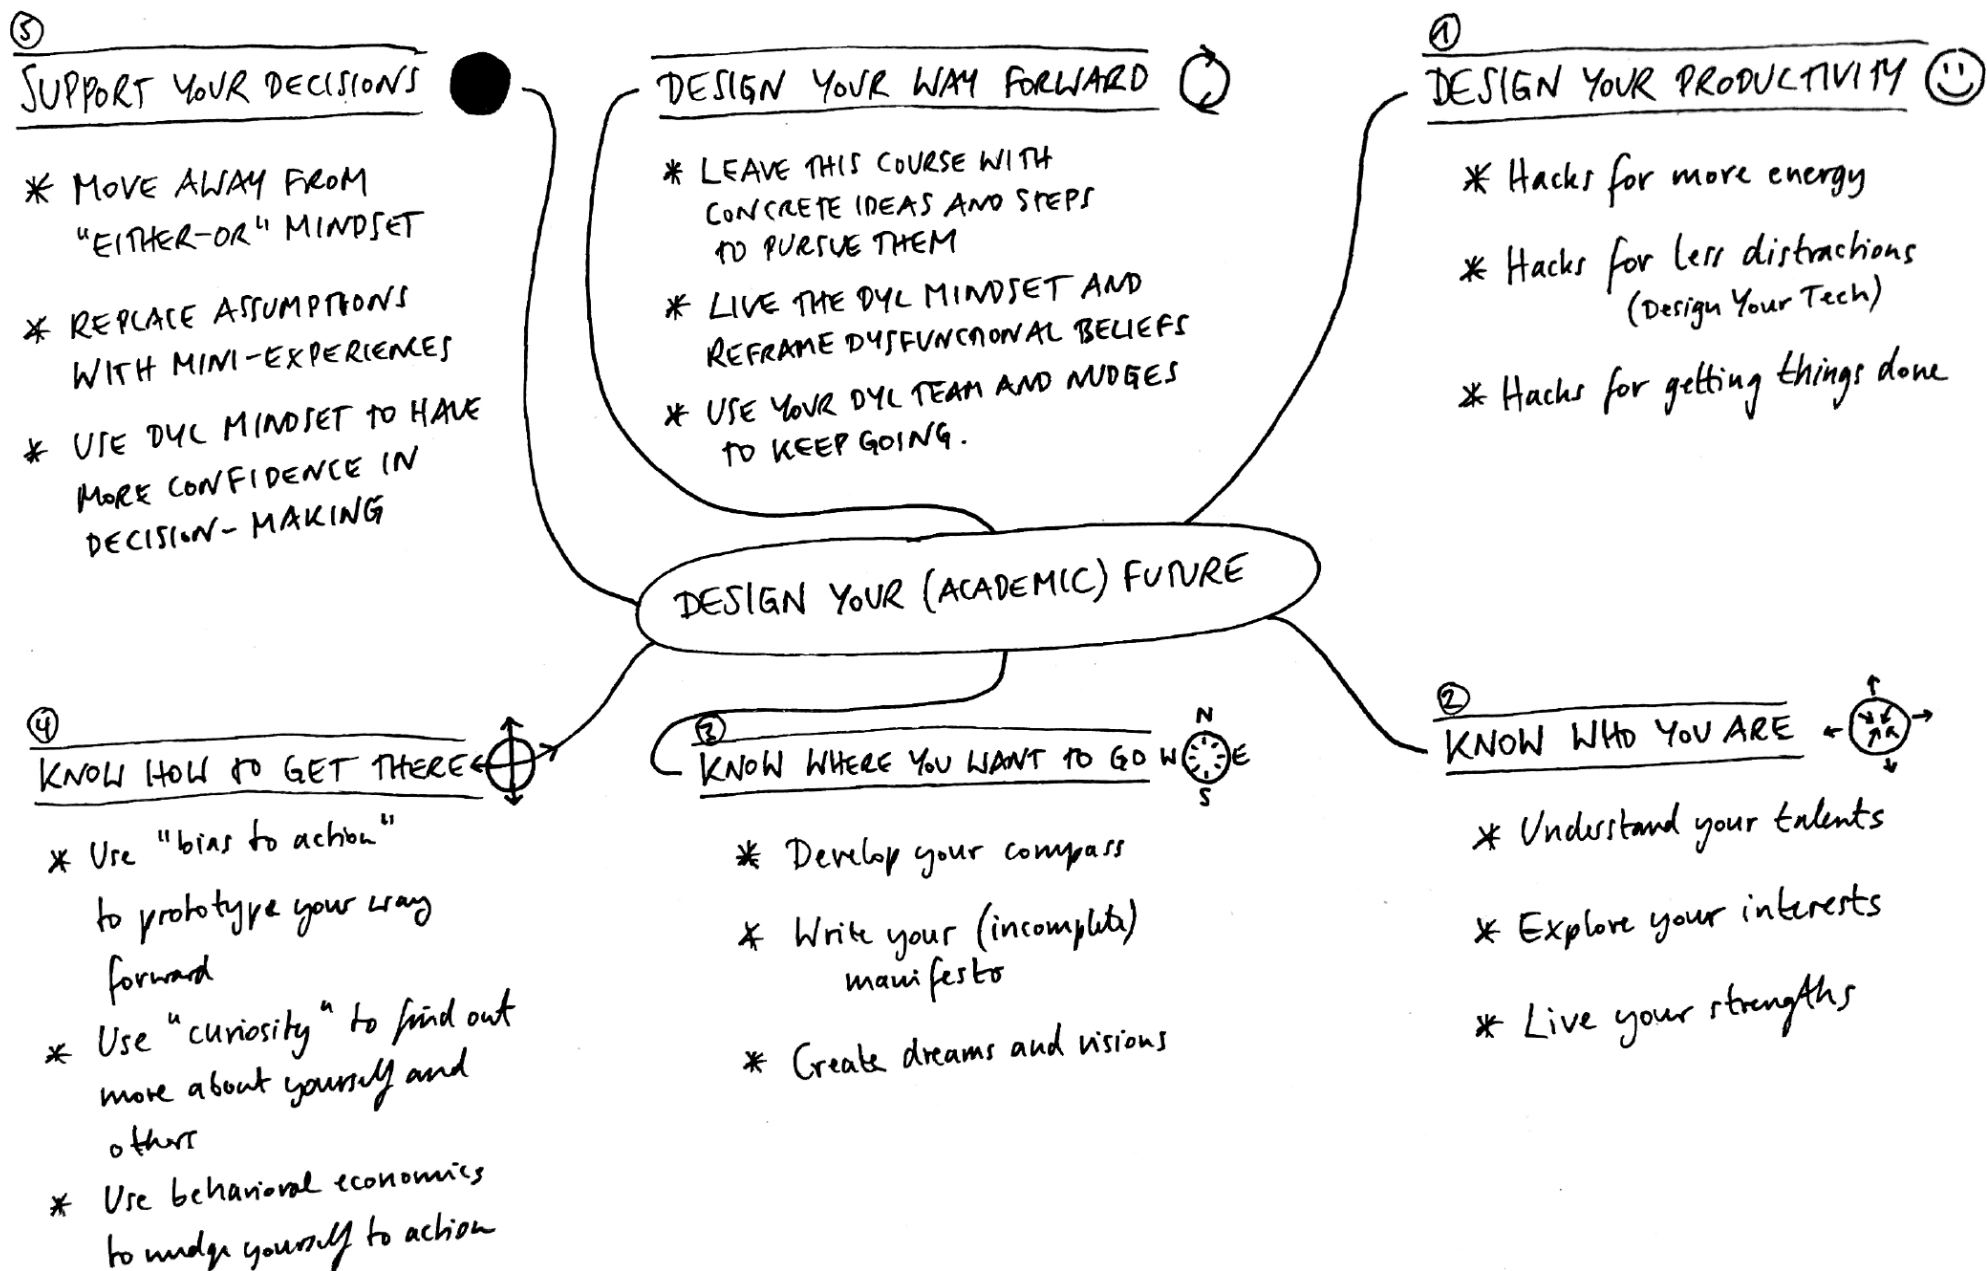 5
SUPPORT YOUR DECISIONS
* MOVE AWAY FROM
"EITHER-OR" MINDSET
* REPLACE ASSUMPTIONS
WITH MINI-EXPERIENCES
* USE DYL MINDSET TO HAVE
MORE CONFIDENCE IN
DECISION-MAKING
DESIGN YOUR WAY FORWARD
* LEAVE THIS COURSE WITH
CONCRETE IDEAS AND STEPS
TO PURSUE THEM
* LIVE THE DYL MINDSET AND
REFRAME DYSFUNCTIONAL BELIEFS
* USE YOUR DYL TEAM AND NUDGES
TO KEEP GOING.
1
DESIGN YOUR PRODUCTIVITY
* Hacks for more energy
* Hacks for less distractions
(Design Your Tech)
* Hacks for getting things done
DESIGN YOUR (ACADEMIC) FUTURE
4
KNOW HOW TO GET THERE
* Use "bias to action"
to prototype your way
forward
* Use "curiosity" to find out
more about yourself and
others
* Use behavioral economics
to nudge yourself to action
3
KNOW WHERE YOU WANT TO GO
N
W E
S
* Develop your compass
* Write your (incomplete)
manifesto
* Create dreams and visions
2
KNOW WHO YOU ARE
* Understand your talents
* Explore your interests
* Live your strengths